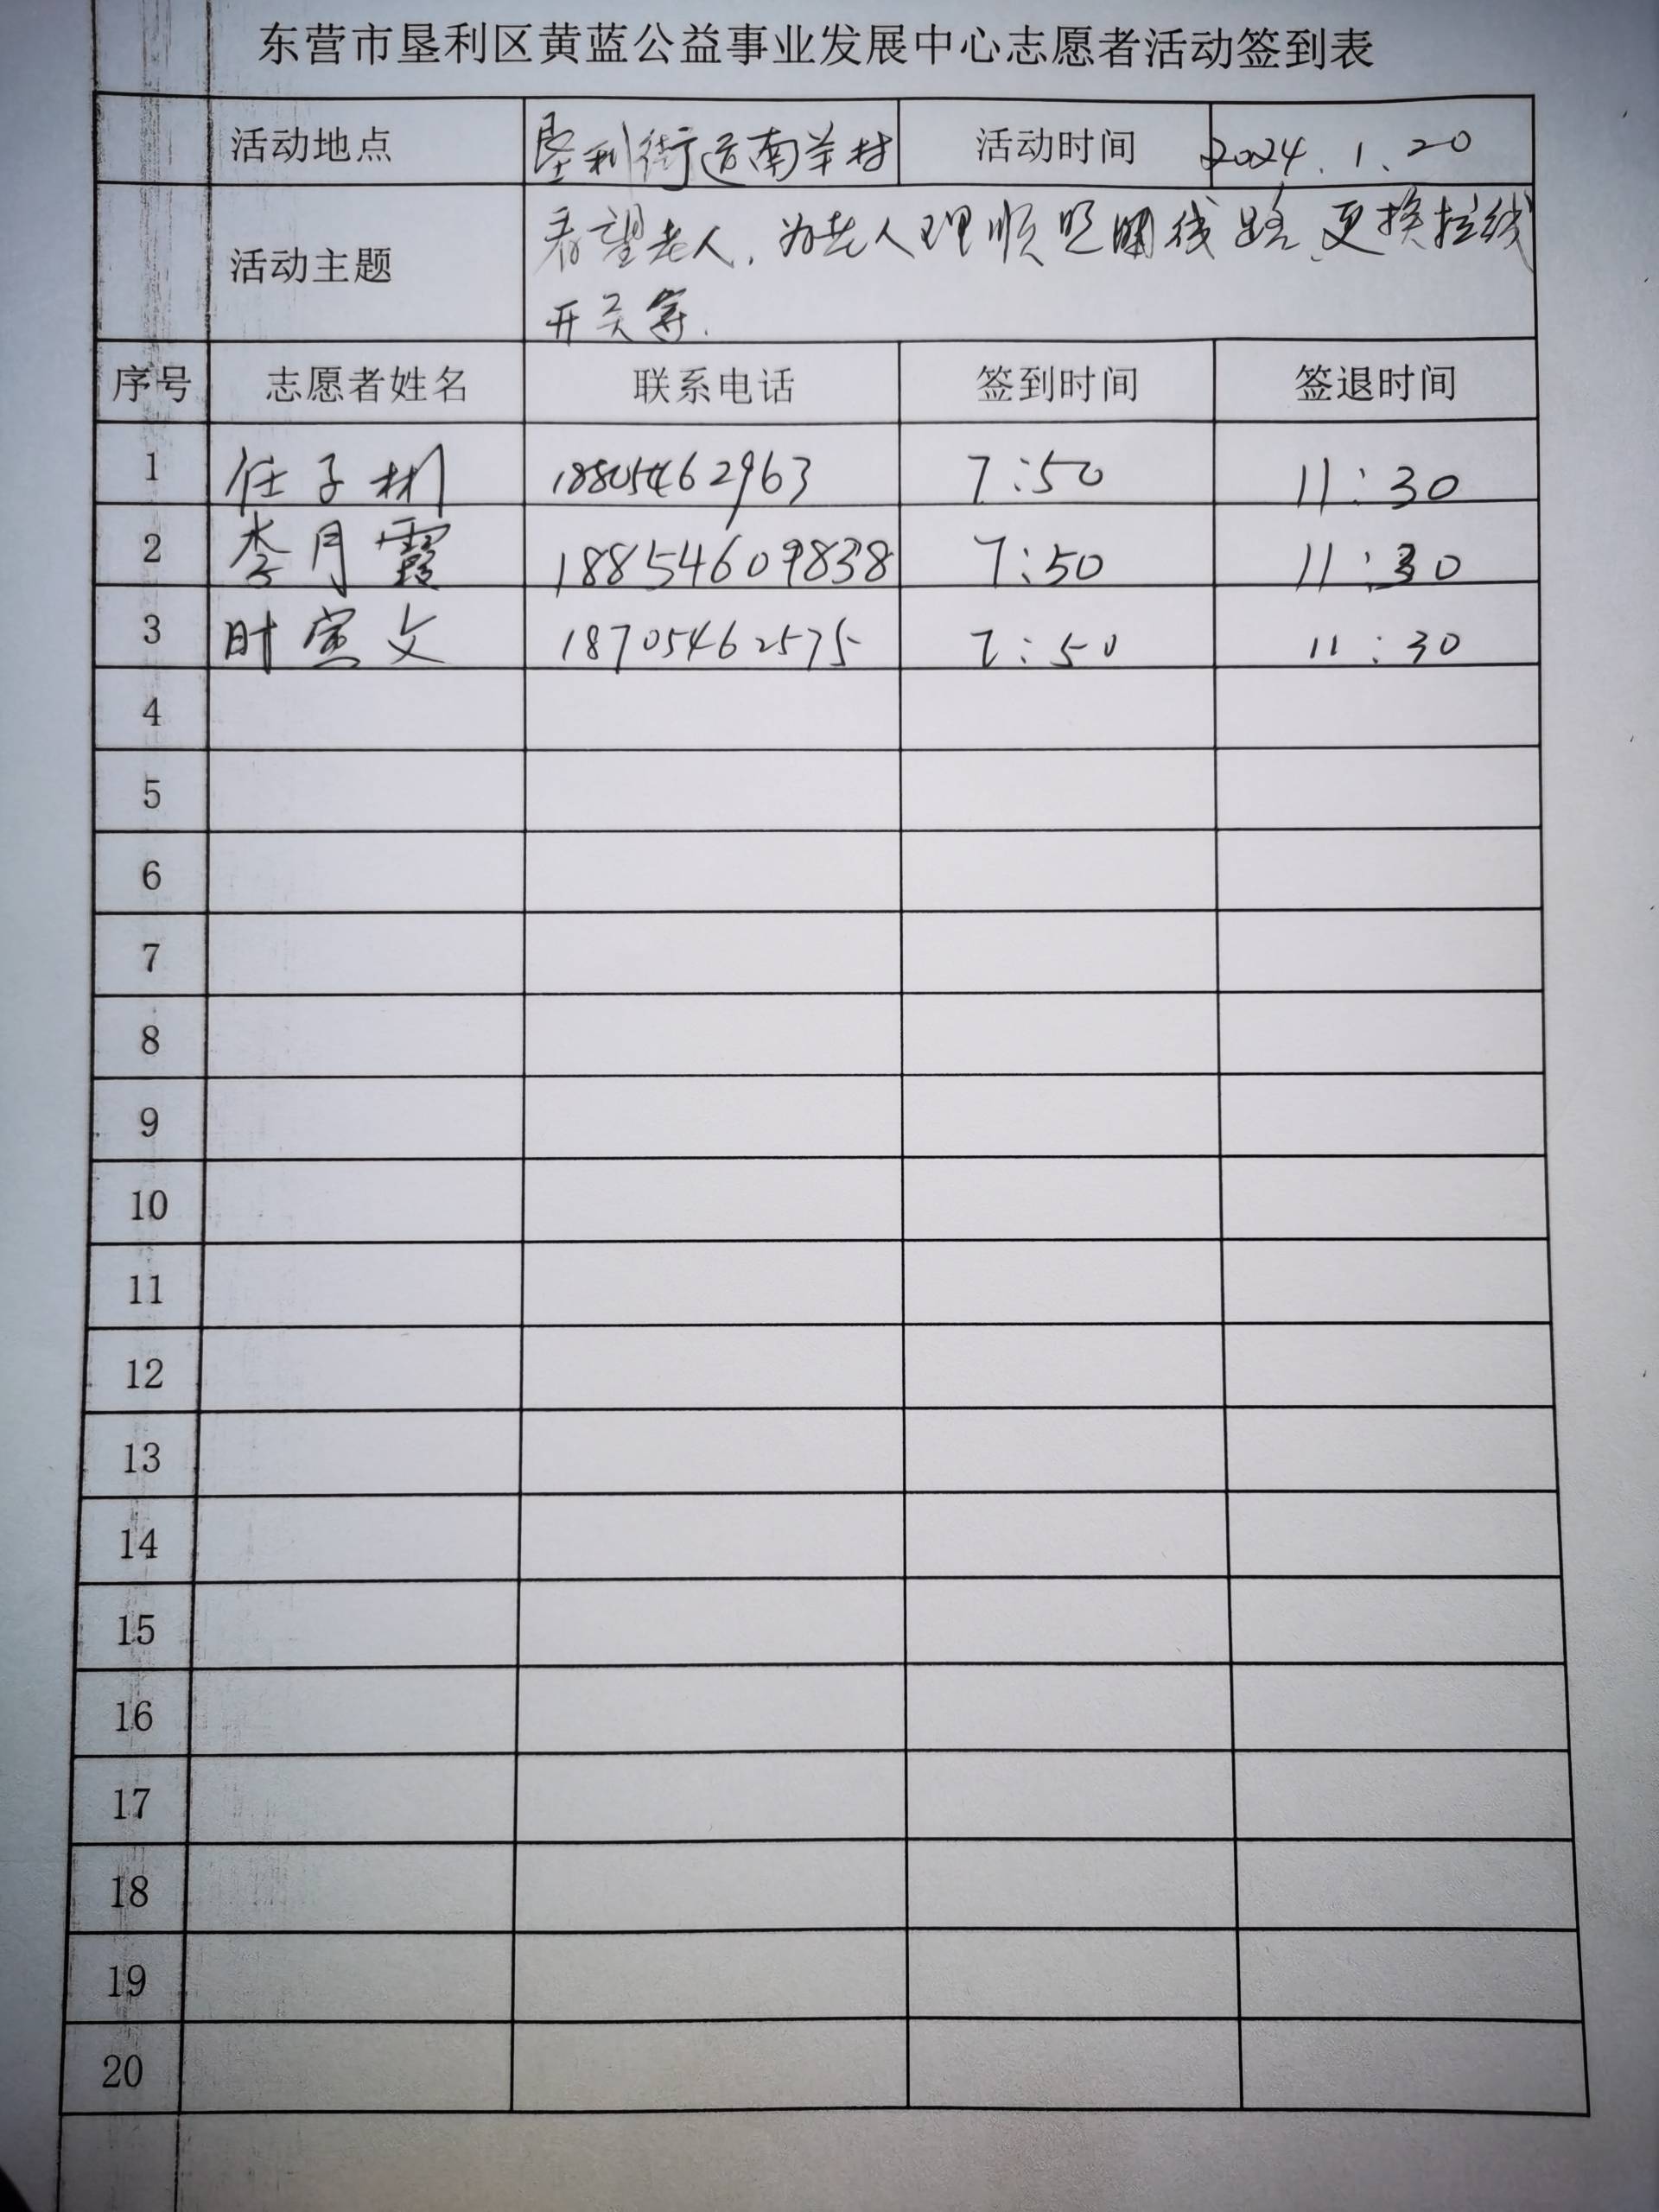 东营市垦利区黄蓝公益事业发展中心志愿者活动签到表
活动地点 垦利街道南羊村 活动时间 2024.1.20
活动主题 看望老人,为老人理顺照明线路、更换拉线
开关等.
序号 志愿者姓名 联系电话 签到时间 签退时间
1 任子彬 18805462963 7:50 11:30
2 李月霞 18854609838 7:50 11:30
3 时宪文 18705462575 7:50 11:30
4
5
6
7
8
9
10
11
12
13
14
15
16
17
18
19
20